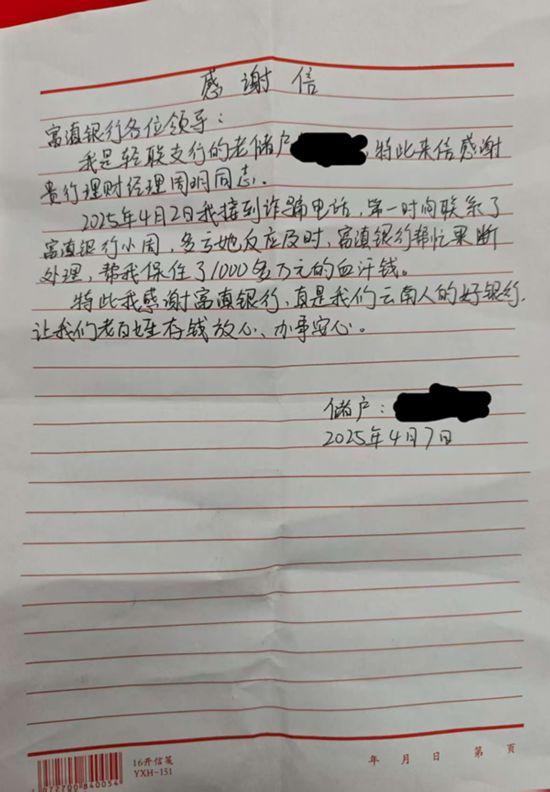 感谢信
富滇银行各位领导：
我是轻联支行的老储户，特此来信感谢
贵行理财经理周玥同志.
2025年4月2日我接到诈骗电话，第一时间联系了
富滇银行小周，多亏她反应及时，富滇银行帮忙果断
处理，帮我保住了1000多万元的血汗钱。
特此我感谢富滇银行，真是我们云南人的好银行，
让我们老百姓存钱放心、办事安心。
储户：
2025年4月7日
16开信笺
YXH-151
年 月 日 第 页